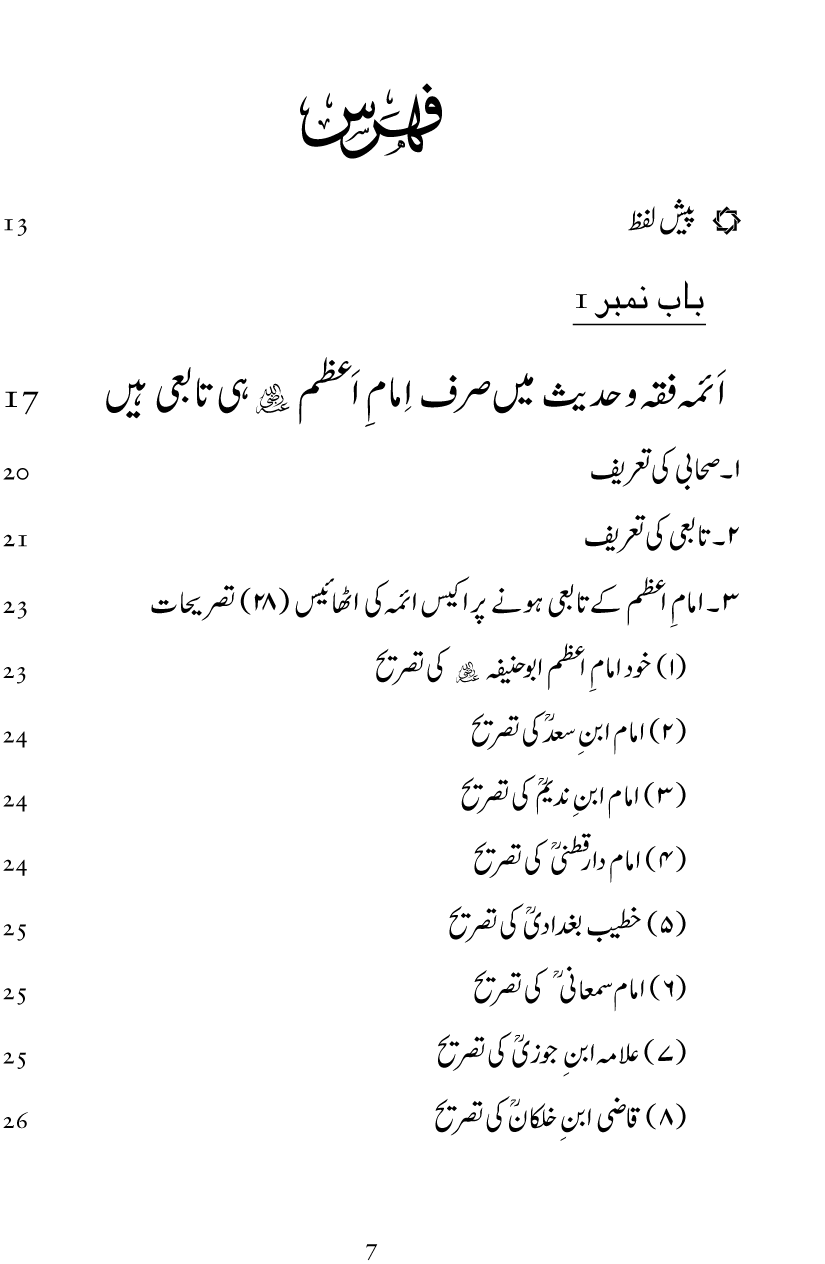 فہرس
پیش لفظ 13
باب نمبر 1
اَئمہ فقہ و حدیث میں صرف اِمامِ اَعظم رضی اللہ عنہ ہی تابعی ہیں 17
۱۔ صحابی کی تعریف 20
۲۔ تابعی کی تعریف 21
۳۔ امامِ اعظم کے تابعی ہونے پر اکیس ائمہ کی اٹھائیس (۲۸) تصریحات 23
(۱) خود امامِ اعظم ابوحنیفہ رضی اللہ عنہ کی تصریح 23
(۲) امام ابنِ سعدؒ کی تصریح 24
(۳) امام ابنِ ندیمؒ کی تصریح 24
(۴) امام دارقطنیؒ کی تصریح 24
(۵) خطیب بغدادیؒ کی تصریح 25
(۶) امام سمعانیؒ کی تصریح 25
(۷) علامہ ابنِ جوزیؒ کی تصریح 25
(۸) قاضی ابنِ خلکانؒ کی تصریح 26
7